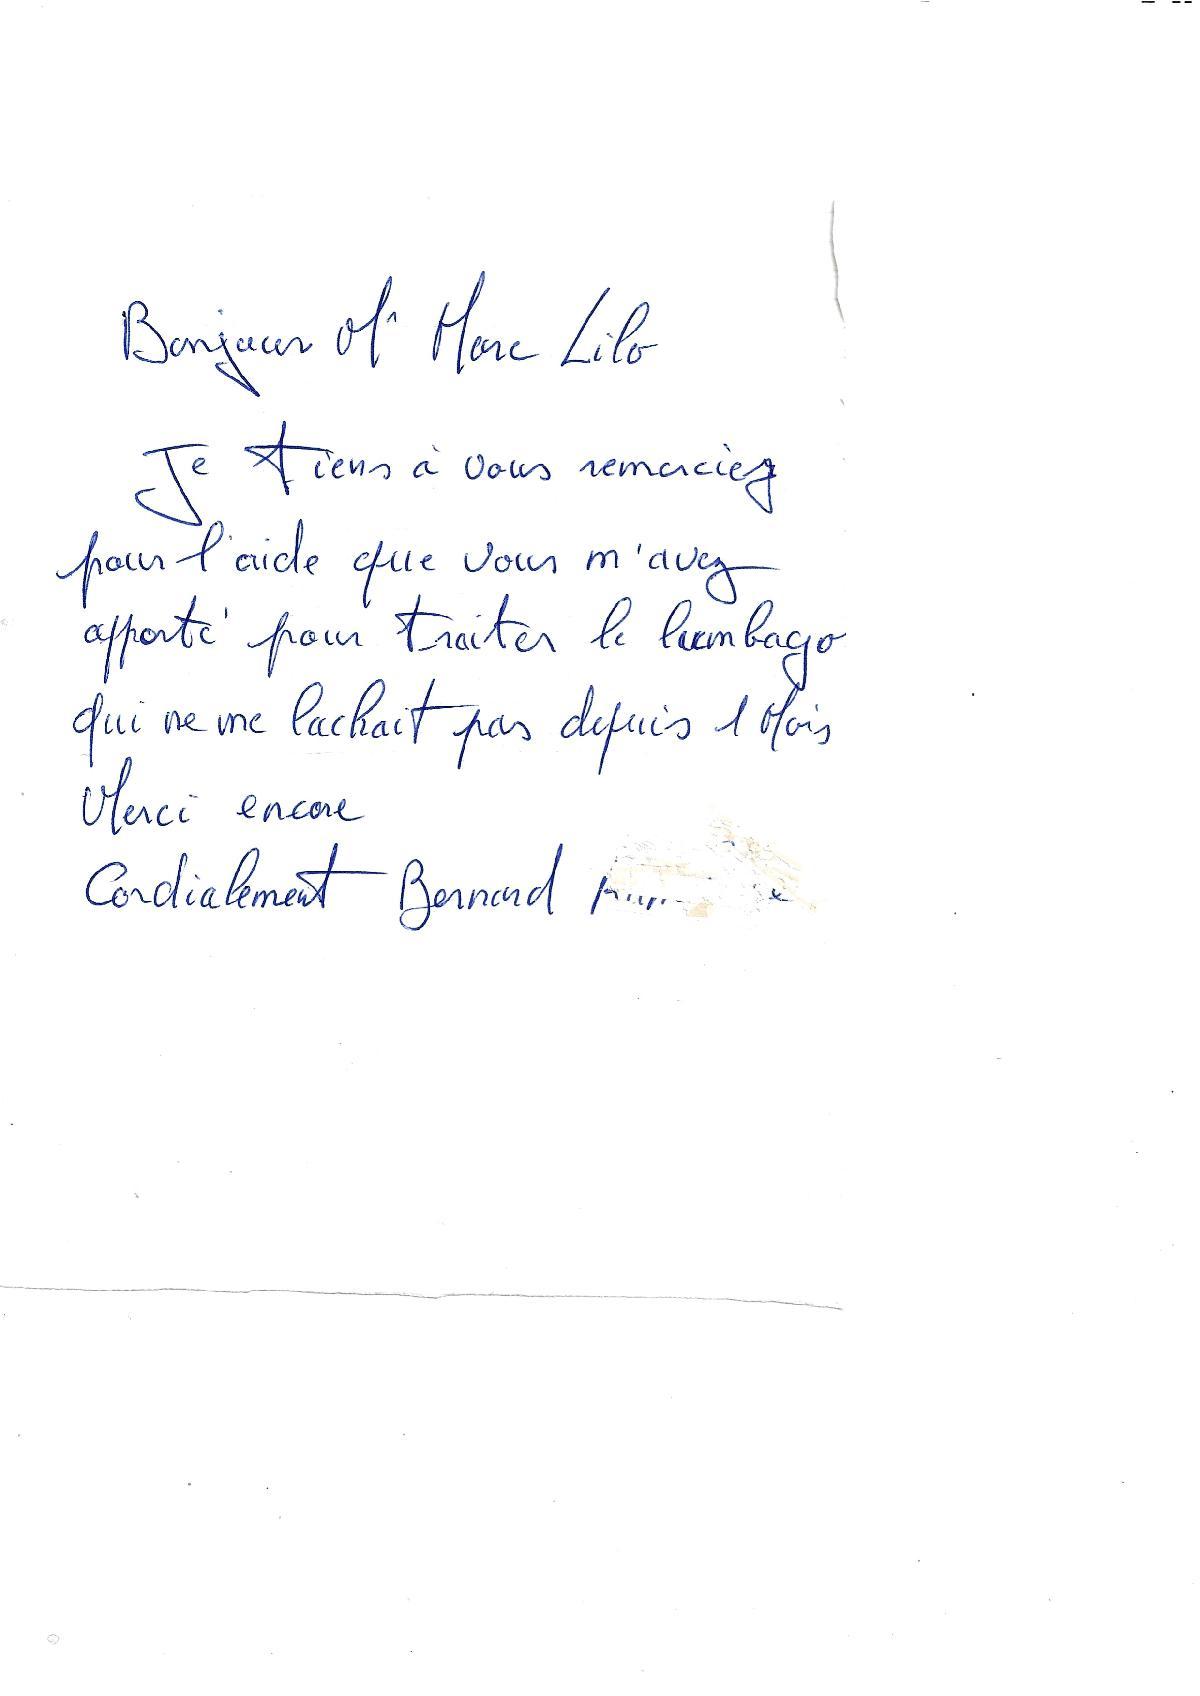 Bonjour Mr Marc Lilo
Je tiens à vous remerciez
pour l'aide que vous m'avez
apporté pour traiter le lumbago
qui ne me lachait pas depuis 1 Mois
Merci encore
Cordialement Bernard